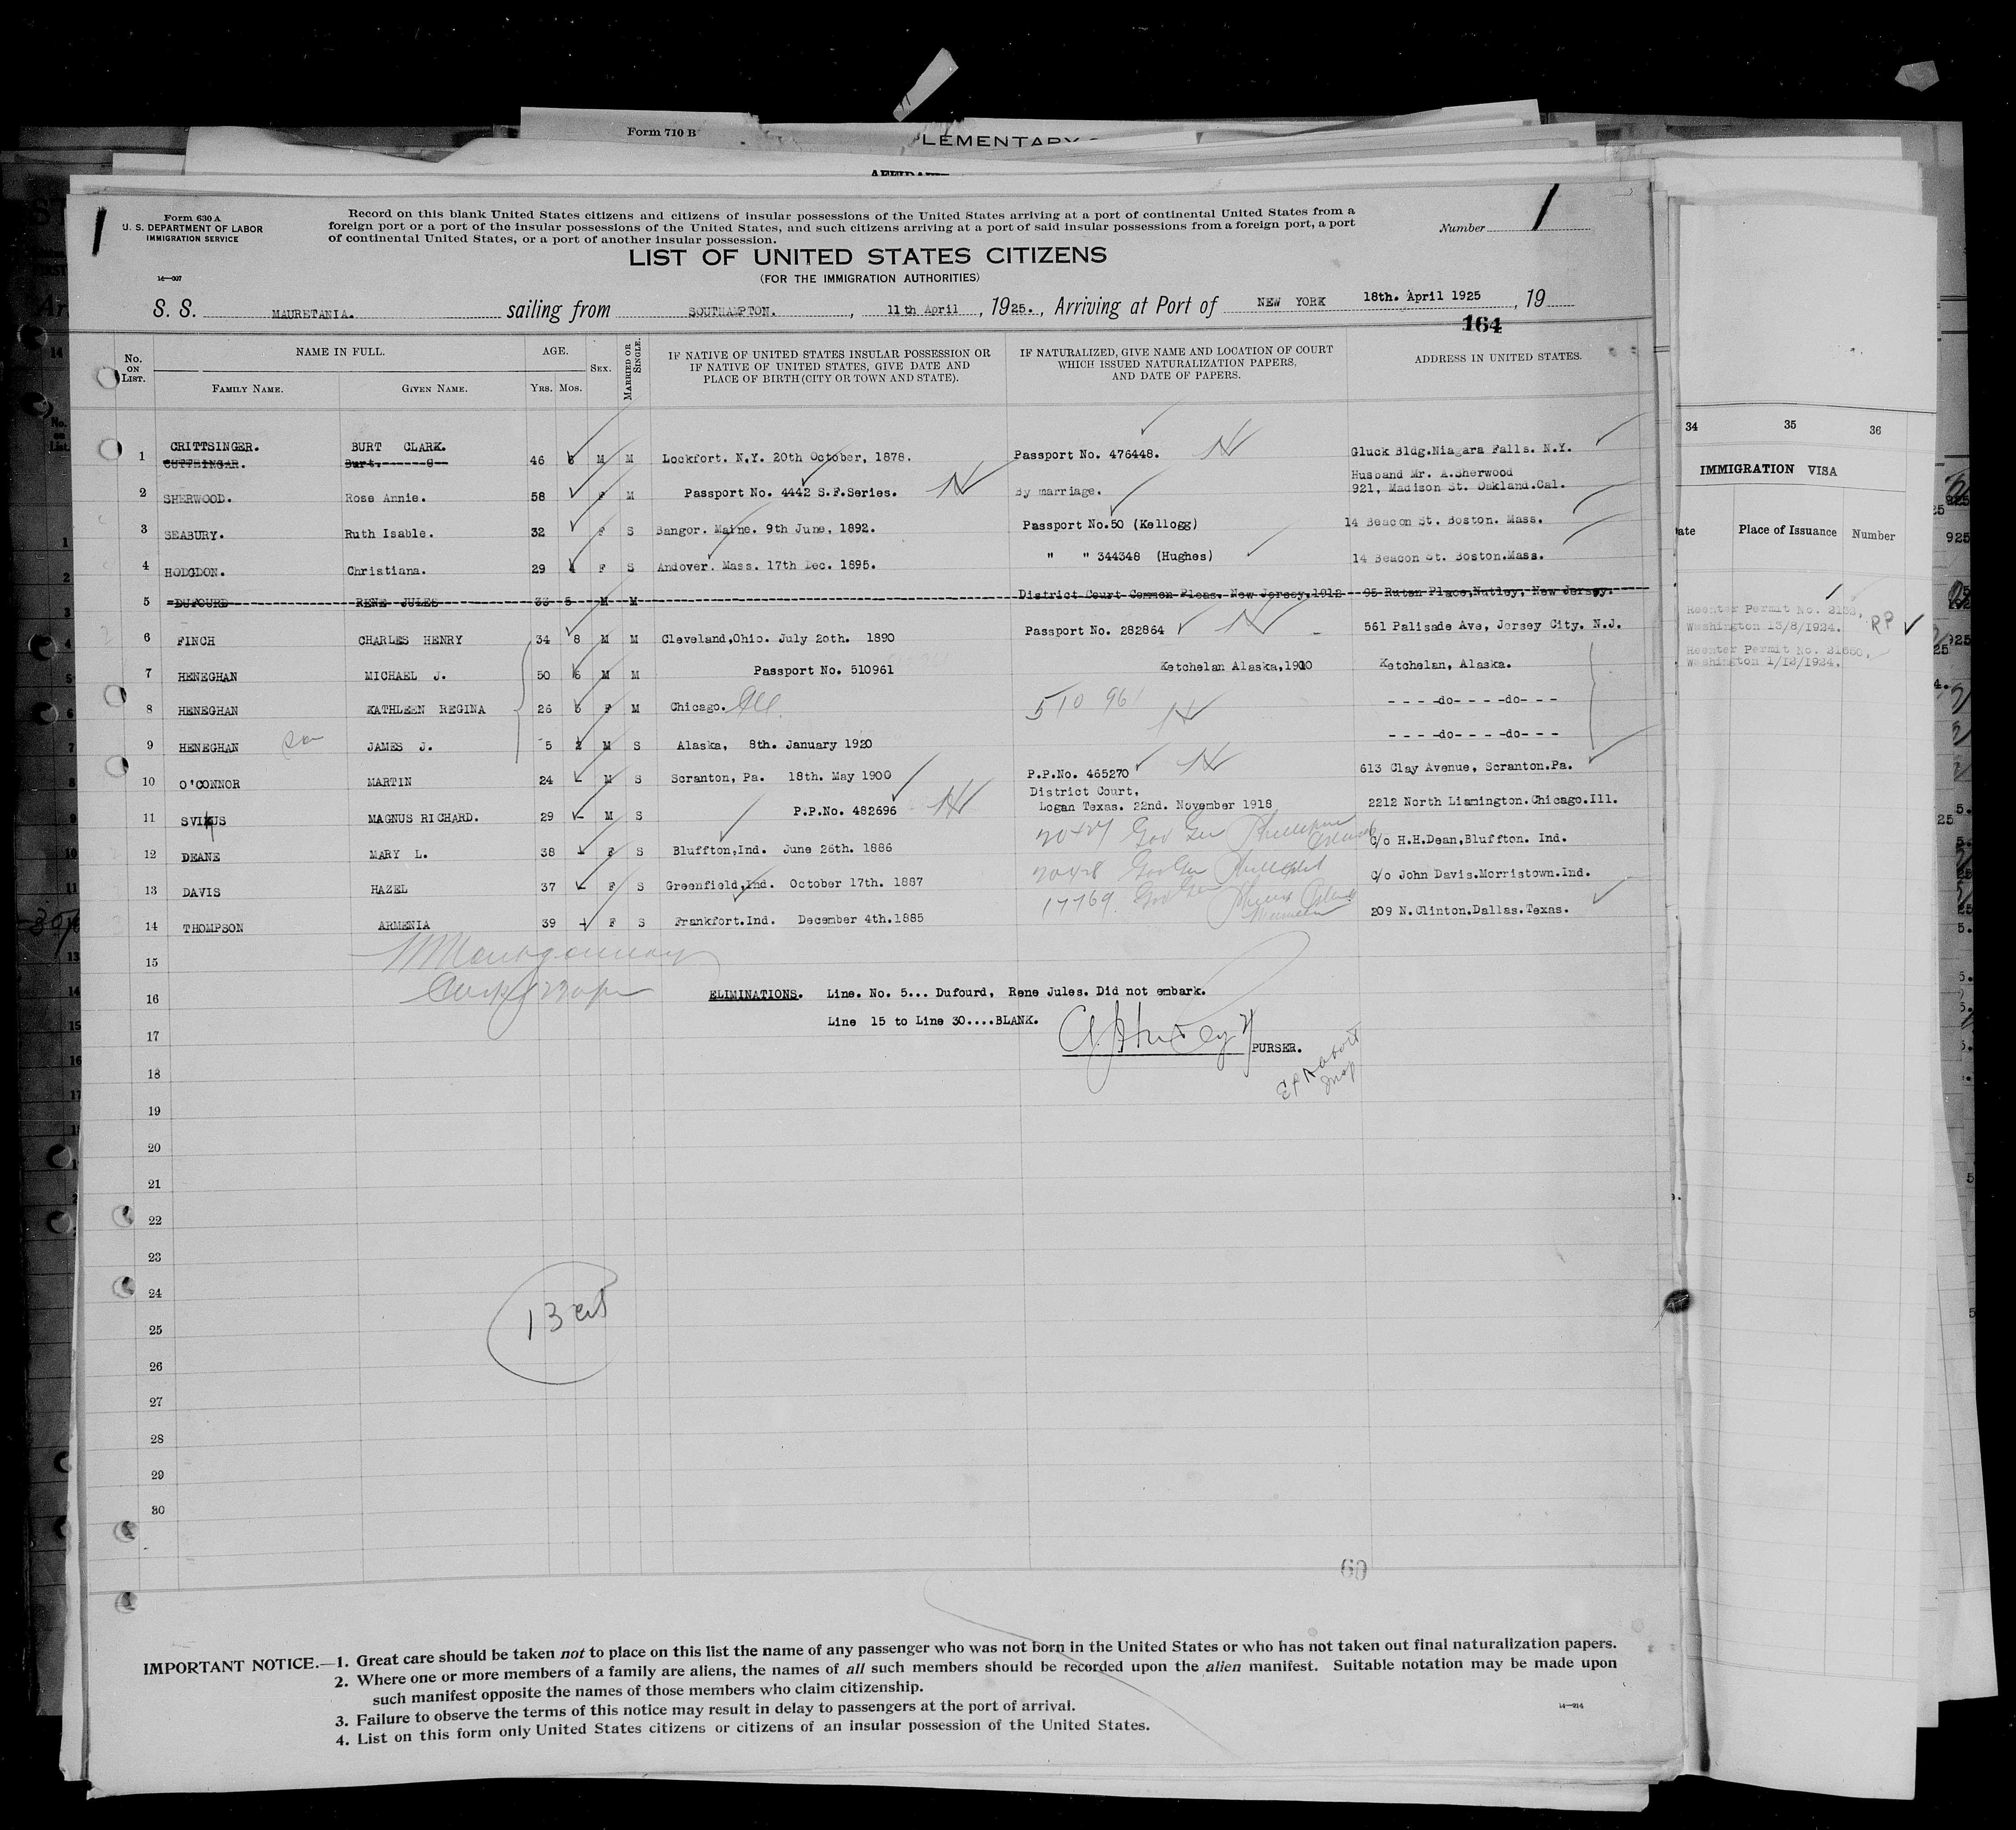 Form 710 B
LEMENTARY
Form 630 A
U. S. DEPARTMENT OF LABOR
IMMIGRATION SERVICE
Record on this blank United States citizens and citizens of insular possessions of the United States arriving at a port of continental United States from a
foreign port or a port of the insular possessions of the United States, and such citizens arriving at a port of said insular possessions from a foreign port, a port
of continental United States, or a port of another insular possession.
Number
LIST OF UNITED STATES CITIZENS
(FOR THE IMMIGRATION AUTHORITIES)
14—907
S. S. MAURETANIA. sailing from SOUTHAMPTON. , 11th April , 1925. , Arriving at Port of NEW YORK 18th. April 1925 , 19
164
No. ON LIST. NAME IN FULL. AGE. SEX. MARRIED OR SINGLE. IF NATIVE OF UNITED STATES INSULAR POSSESSION OR IF NATIVE OF UNITED STATES, GIVE DATE AND PLACE OF BIRTH (CITY OR TOWN AND STATE). IF NATURALIZED, GIVE NAME AND LOCATION OF COURT WHICH ISSUED NATURALIZATION PAPERS, AND DATE OF PAPERS. ADDRESS IN UNITED STATES.
FAMILY NAME. GIVEN NAME. YRS. MOS.
CRITTSINGER. BURT CLARK.
1 CUTTHINGAR. Burt. C 46 6 M M Lockfort. N.Y. 20th October, 1878. Passport No. 476448. Gluck Bldg.Niagara Falls. N.Y.
Husband Mr. A.Sherwood
2 SHERWOOD. Rose Annie. 58 F M Passport No. 4442 S.F.Series. By marriage. 921, Madison St. Oakland.Cal.
3 SEABURY. Ruth Isable. 32 F S Bangor. Maine. 9th June, 1892. Passport No.50 (Kellogg) 14 Beacon St. Boston. Mass.
4 HODGDON. Christiana. 29 4 F S Andover. Mass. 17th Dec. 1895. " " 344348 (Hughes) 14 Beacon St. Boston.Mass.
5 DUFOURD RENE JULES 33 5 M M District Court Common Pleas, New Jersey,1912 95 Rutan Place,Nutley, New Jersey.
6 FINCH CHARLES HENRY 34 8 M M Cleveland,Ohio. July 20th. 1890 Passport No. 282864 561 Palisade Ave, Jersey City. N.J.
7 HENEGHAN MICHAEL J. 50 6 M M Passport No. 510961 Ketchelan Alaska,1910 Ketchelan, Alaska.
8 HENEGHAN KATHLEEN REGINA 26 5 F M Chicago. Ill. 510 961 - - - -do- - - -do- - -
9 HENEGHAN JAMES J. 5 2 M S Alaska, 8th. January 1920 - - - -do- - - -do- - -
10 O'CONNOR MARTIN 24 M S Scranton, Pa. 18th. May 1900 P.P.No. 465270 613 Clay Avenue, Scranton.Pa.
District Court,
11 SVIKUS MAGNUS RICHARD. 29 M S P.P.No. 482696 Logan Texas. 22nd. November 1918 2212 North Liamington.Chicago.Ill.
12 DEANE MARY L. 38 F S Bluffton,Ind. June 26th. 1886 20427 Gov Gen c/o H.H.Dean,Bluffton. Ind.
13 DAVIS HAZEL 37 F S Greenfield,Ind. October 17th. 1887 20428 Gov Gen c/o John Davis.Morristown.Ind.
14 THOMPSON ARMENIA 39 F S Frankfort.Ind. December 4th.1885 17769 Gov Gen 209 N.Clinton.Dallas.Texas.
15
16 ELIMINATIONS. Line. No. 5... Dufourd, Rene Jules. Did not embark.
Line 15 to Line 30....BLANK.
17 PURSER.
18
19
20
21
22
23
24
13
25
26
27
28
29
30
60
IMPORTANT NOTICE.—1. Great care should be taken not to place on this list the name of any passenger who was not born in the United States or who has not taken out final naturalization papers.
2. Where one or more members of a family are aliens, the names of all such members should be recorded upon the alien manifest. Suitable notation may be made upon
such manifest opposite the names of those members who claim citizenship.
3. Failure to observe the terms of this notice may result in delay to passengers at the port of arrival.
4. List on this form only United States citizens or citizens of an insular possession of the United States.
14—914
34 35 36
IMMIGRATION VISA
ate Place of Issuance Number
Reenter Permit No. 2132,
Washington 13/8/1924. RP
Reenter Permit No. 21650,
Washington 1/12/1924.